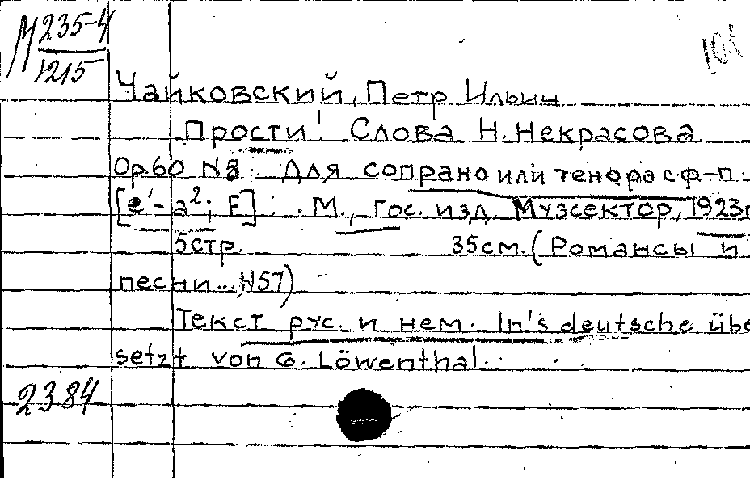 М 235-4
1215
101
Чайковский, Петр Ильич
Прости! Слова Н. Некрасова
Op.60 N8. Для сопрано или тенора с ф-п.
[e'-a²; E]. М., Гос. изд. Музсектор, 1923г
5стр. 35см. (Романсы и
песни... N57)
Текст рус. и нем. In's deutsche übe
setzt von G. Löwenthal.
2384